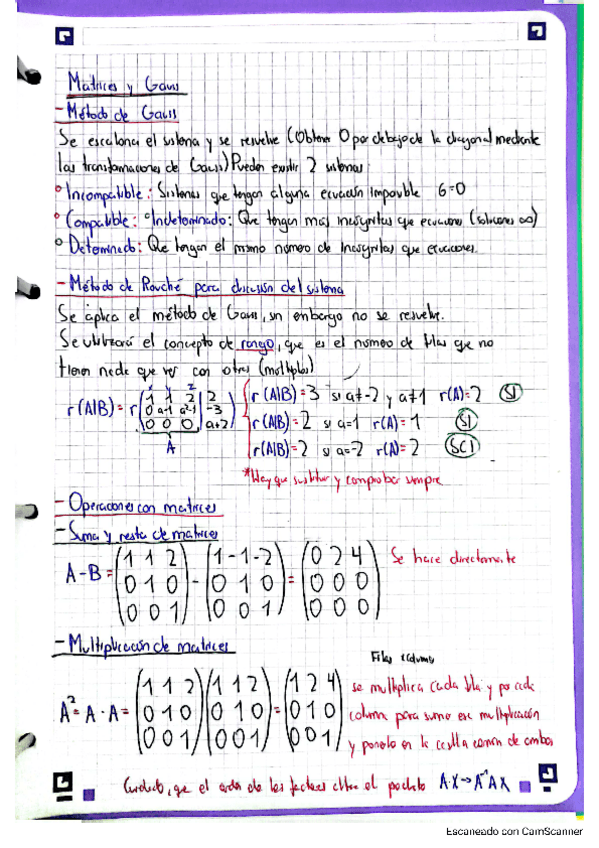 Matrices y Gauss
- Método de Gauss
Se escalona el sistema y se resuelve (Obtener 0 por debajo de la diagonal mediante
las transformaciones de Gauss) Pueden existir 2 sistemas:
° Incompatible: Sistemas que tengan alguna ecuación imposible 6=0
° Compatible: °Indeterminado: Que tengan mas incógnitas que ecuaciones (soluciones ∞)
° Determinado: Que tengan el mismo número de incógnitas que ecuaciones.
- Método de Rouché para discusión del sistema
Se aplica el método de Gauss, sin embargo no se resuelve.
Se utilizará el concepto de rango, que es el número de filas que no
tienen nada que ver con otras (múltiplos)
x y z
r(A|B) = r (1 1 2 | 2
0 a-1 a²-1 | -3
0 0 0 | a+2)
A
r(A|B)=3 si a≠-2 y a≠1 r(A)=2 SI
r(A|B)=2 si a=1 r(A)=1 SI
r(A|B)=2 si a=-2 r(A)=2 SCI
*Hay que sustituir y comprobar siempre
- Operaciones con matrices
- Suma y resta de matrices
A-B = (1 1 2 0 1 0 0 0 1) - (1 -1 -2 0 1 0 0 0 1) = (0 2 4 0 0 0 0 0 0) Se hace directamente
- Multiplicación de matrices
Filas x columnas
A² = A · A = (1 1 2 0 1 0 0 0 1)(1 1 2 0 1 0 0 0 1) = (1 2 4 0 1 0 0 0 1)
se multiplica cada fila y por cada
columna para sumo esa multiplicación
y ponerlo en la casilla común de ambas
Cuidado, que el orden de los factores altera el producto A·X → A⁻¹AX
Escaneado con CamScanner